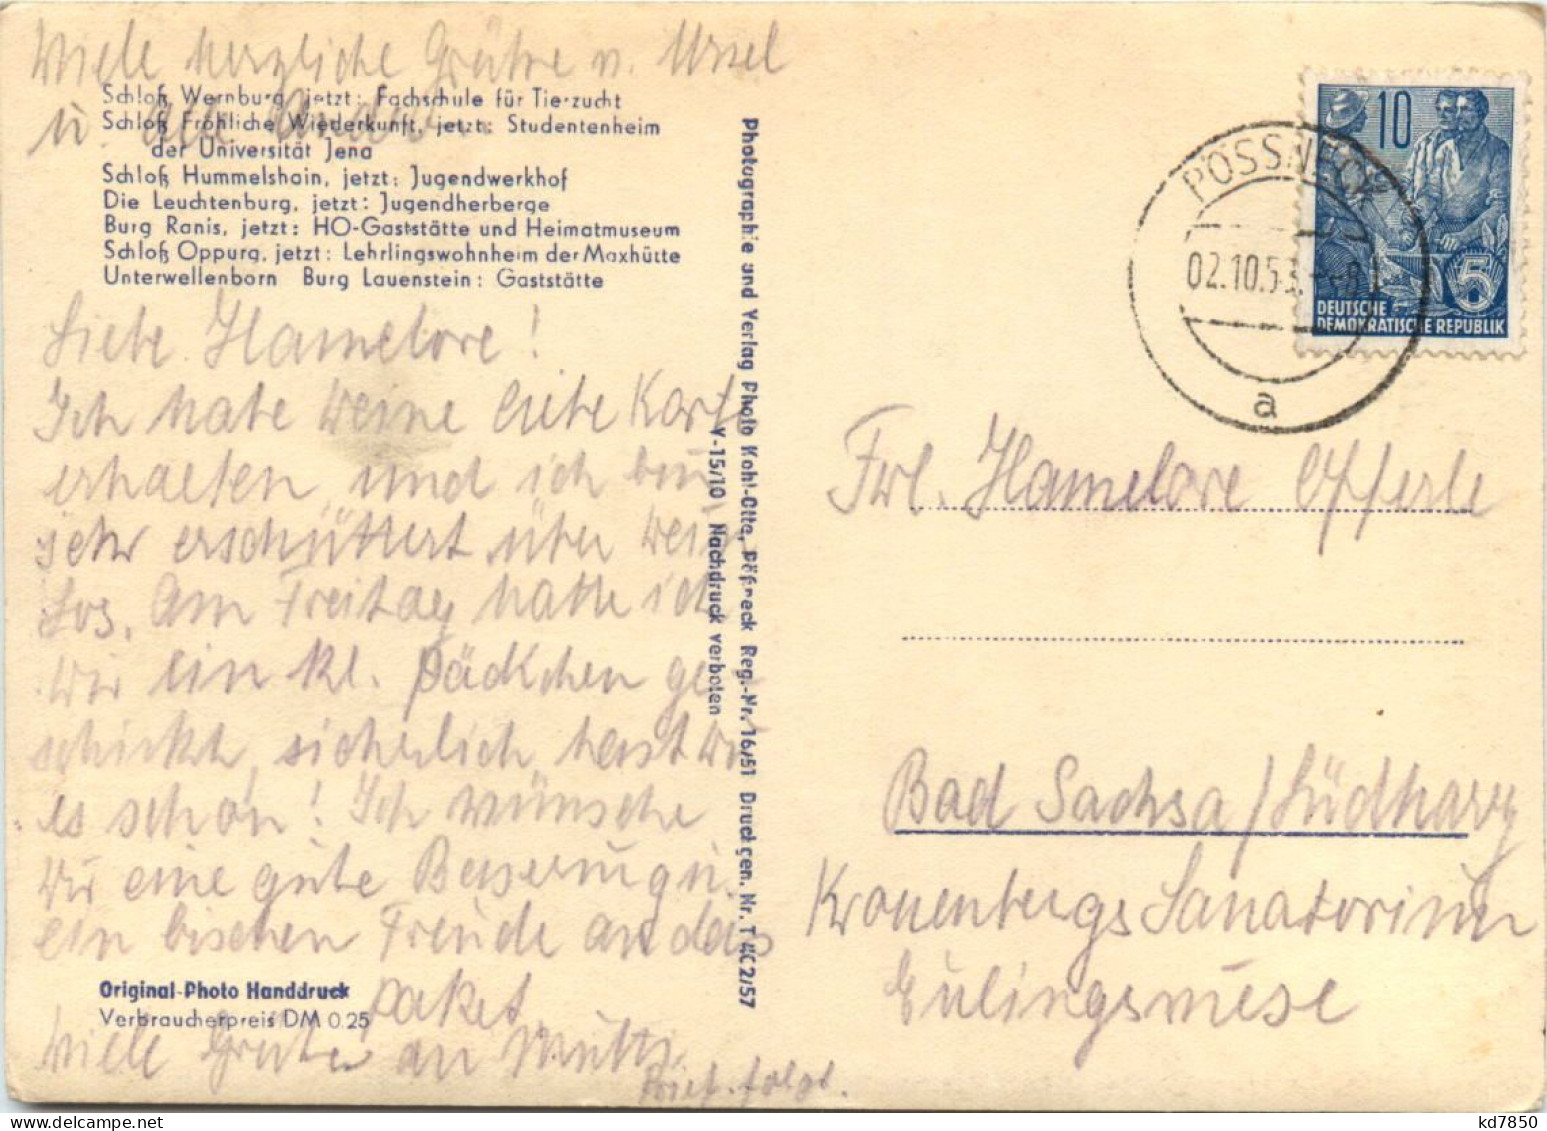 Viele herzliche Grüße v. Ursel
u. alle
Schloß Wernburg, jetzt: Fachschule für Tierzucht
Schloß Fröhliche Wiederkunft, jetzt: Studentenheim
der Universität Jena
Schloß Hummelshain, jetzt: Jugendwerkhof
Die Leuchtenburg, jetzt: Jugendherberge
Burg Ranis, jetzt: HO-Gaststätte und Heimatmuseum
Schloß Oppurg, jetzt: Lehrlingswohnheim der Maxhütte
Unterwellenborn Burg Lauenstein: Gaststätte
Liebe Hannelore!
Ich habe Deine liebe Karte
erhalten und ich bin
sehr erschüttert über Dein
Los. Am Freitag hatte ich
Dir ein kl. Päckchen ge-
schickt, sicherlich hast Du
es schon! Ich wünsche
Dir eine gute Besserung u.
ein bischen Freude an das
Paket.
Viele Grüße an Mutti.
Brief folgt.
Original-Photo Handdruck
Verbraucherpreis DM 0.25
Photographie und Verlag Photo Kohl-Otto, Pößneck Reg.-Nr. 16/51 Druckgen. Nr. T 4C2/57
V-15/10 Nachdruck verboten
10
5
DEUTSCHE
DEMOKRATISCHE REPUBLIK
PÖSSNECK
02.10.53
a
Frl. Hannelore Opferle
Bad Sachsa / Südharz
Kronenbergs Sanatorium
Eulingswiese
kd7850